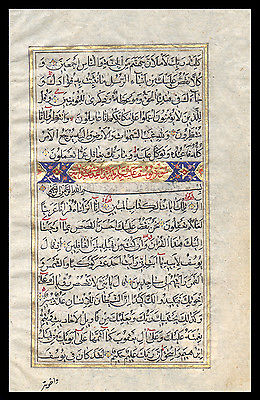 كلمة ربك لأملأن جهنم من الجنة والناس أجمعين و
كلا نقص عليك من أنباء الرسل ما نثبت به فؤادك و
جاءك في هذه الحق وموعظة وذكرى للمؤمنين وقل
للذين لا يؤمنون اعملوا على مكانتكم إنا عاملون وانتظروا إنا
منتظرون ولله غيب السموات والأرض وإليه يرجع الأمر
كله فاعبده وتوكل عليه وما ربك بغافل عما تعملون
بسم الله الرحمن الرحيم
الر تلك آيات الكتاب المبين إنا أنزلناه قرآنا عربيا
لعلكم تعقلون نحن نقص عليك أحسن القصص بما أوحينا
إليك هذا القرآن وإن كنت من قبله لمن الغافلين إذ قال
يوسف لأبيه يا أبت إني رأيت أحد عشر كوكبا والشمس و
القمر رأيتهم لي ساجدين قال يا بني لا تقصص رؤياك على
إخوتك فيكيدوا لك كيدا إن الشيطان للإنسان عدو مبين
وكذلك يجتبيك ربك ويعلمك من تأويل الأحاديث و
يتم نعمته عليك وعلى آل يعقوب كما أتمها على أبويك من قبل
إبراهيم وإسحق إن ربك عليم حكيم لقد كان في يوسف
وإخوته